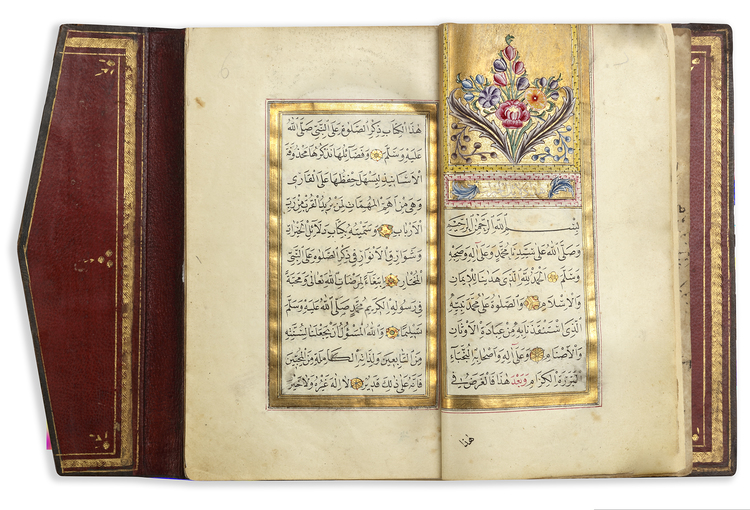 بسم الله الرحمن الرحيم
وصلى الله على سيدنا محمد وعلى اله وصحبه
وسلم الحمد لله الذى هدينا للايمان
والاسلام والصلوة على محمد نبيه
الذى استنقذنا به من عبادة الاوثان
والاصنام وعلى اله واصحابه النجباء
البررة الكرام وبعد هذا فالغرض فى
هذا
هذا الكتاب ذكر الصلوة على النبى صلى الله
عليه وسلم وفضائلها نذكرها محذوفة
الاسانيد ليسهل حفظها على القارى
وهى من اهم المهمات لمن يريد القرب من رب
الارباب وسميته بكتاب دلائل الخيرات
وشوارق الانوار فى ذكر الصلوة على النبى
المختار ابتغاء لمرضات الله تعالى ومحبة
فى رسوله الكريم محمد صلى الله عليه وسلم
تسليما والله المسؤل ان يجعلنا لسنته
من التابعين ولذاته الكاملة من المحبين
فانه على ذلك قدير لا اله غيره ولا خير